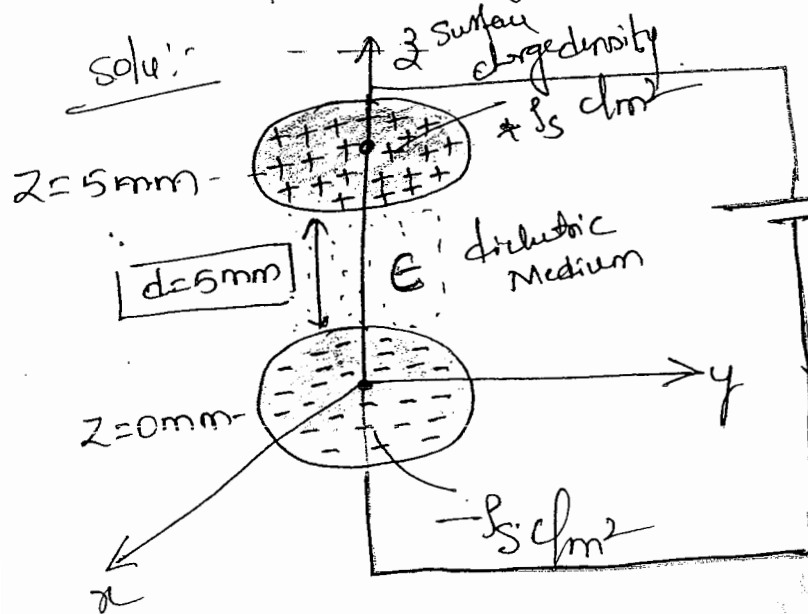 Solu:-
z surface
charge density
+ ρs C/m²
z=5mm
d=5mm
ε dielectric
Medium
y
z=0mm
-ρs C/m²
x